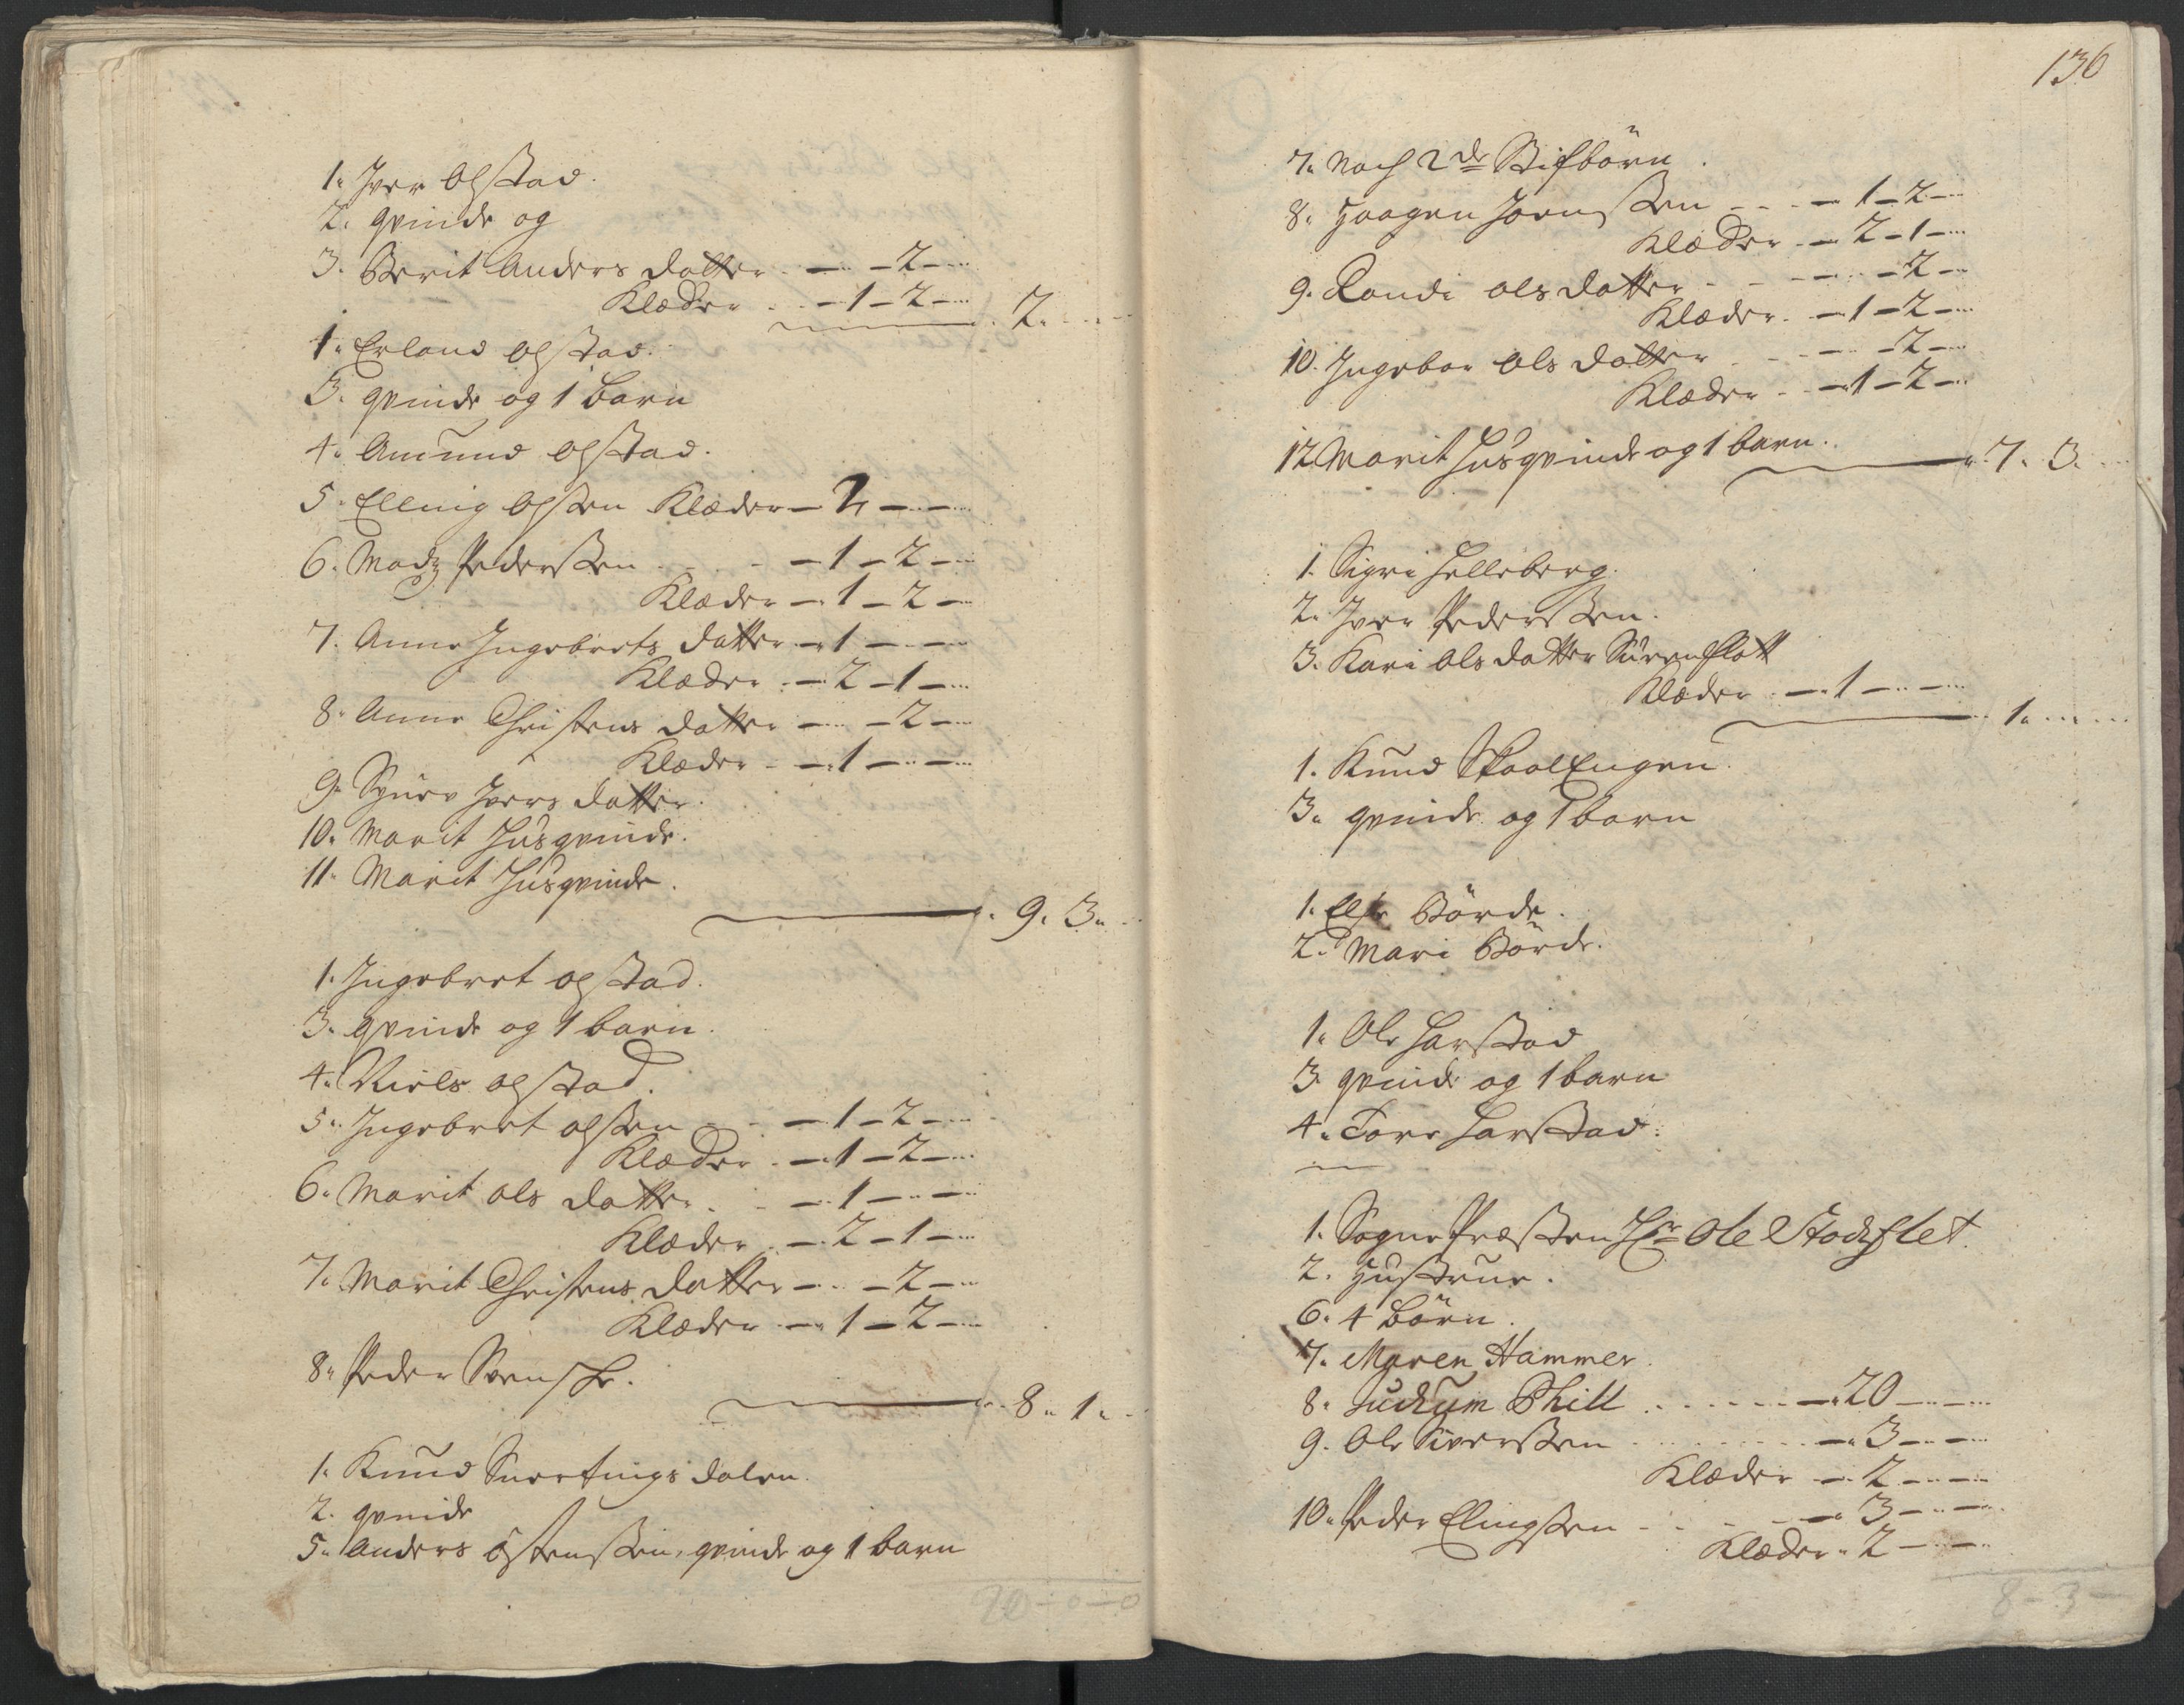 1. Iver Olstad.
2. qvinde og
3. Berit Anders datter - - 2 -
Klæder - 1 - 2 -
2.
1. Erland Olstad.
3. qvinde og 1 barn
4. Amund Olstad.
5. Elling Olsen Klæder - 2 - -
6. Madz Pedersen - 1 - 2 -
Klæder - 1 - 2 -
7. Anne Ingebrets datter - 1 - -
Klæder - 2 - 1 -
8. Anne Christens datter - - 2 -
Klæder - 1 - -
9. Ivers datter.
10. Marit Huusqvinde.
11. Marit Huusqvinde.
9. 3.
1. Ingebret Olstad.
3. qvinde og 1 barn.
4. Niels Olstad.
5. Ingebret Olsen - 1 - 2 -
Klæder - 1 - 2 -
6. Marit Ols datter - 1 - -
Klæder - 2 - 1 -
7. Marit Christens datter - - 2 -
Klæder - 1 - 2 -
8. Peder Svenske.
8. 1.
1. Knud Snertingsdalen.
2. qvinde
5. Anders Østensen, qvinde og 1 barn
20 - 0 - 0
136
7. Noch 2de Stifbörn.
8. Haagen Joensen - 1 - 2 -
Klæder - 2 - 1 -
9. Randi Ols datter - - 2 -
Klæder - 1 - 2 -
10. Ingebor Ols datter - - 2 -
Klæder - 1 - 2 -
12. Marit Huusqvinde og 1 barn.
7. 3.
1. Sigri Helleberg.
2. Iver Pedersen.
3. Kari Ols datter
Klæder - 1 - -
1.
1. Knud
3. qvinde og 1 barn
1. Else Börde.
2. Mari Börde.
1. Ole Harstad
3. qvinde og 1 barn
4. Tore Harstad.
1. Sogne Præsten Hr Ole Stochflet.
2. Hustrue.
6. 4 börn.
7. Maren Hammer.
8. Phill - 20 - -
9. Ole Siversen - 3 - -
Klæder - 2 - -
10. Peder Elingsen - 3 - -
Klæder - 2 - -
8 - 3 -